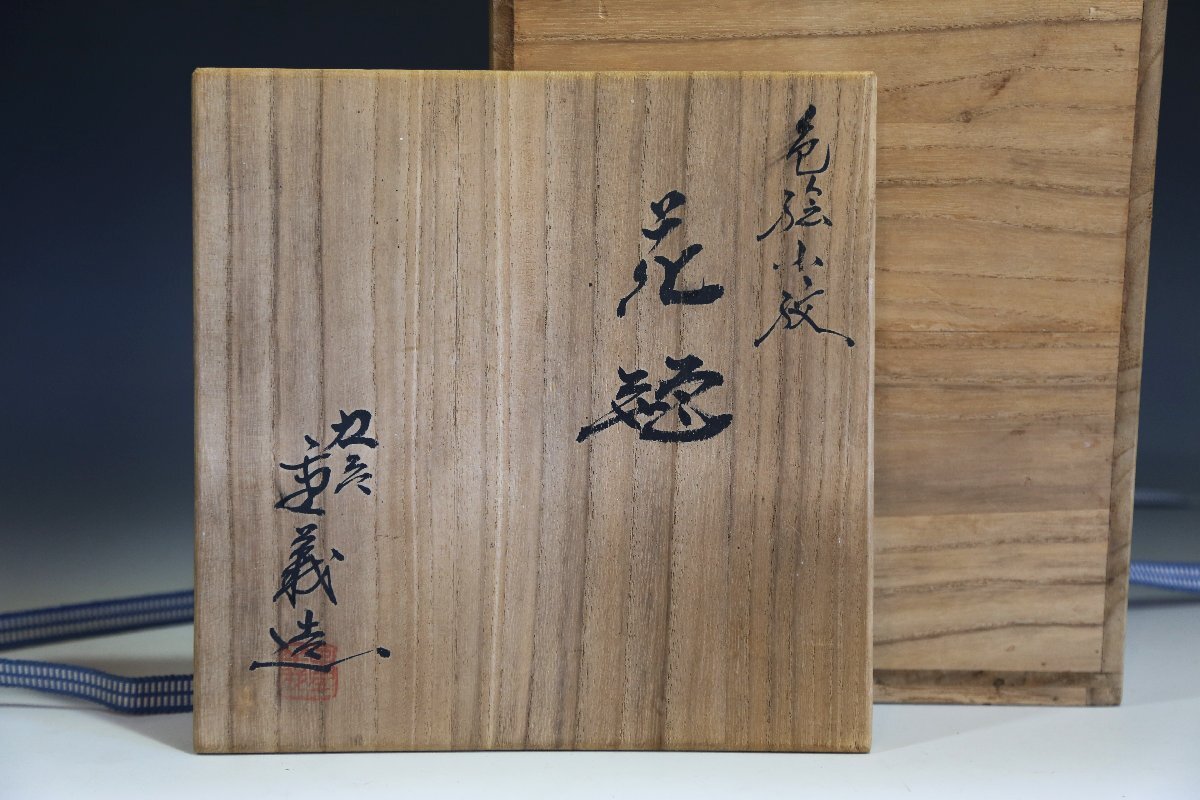 色絵小紋
花瓶
九谷
重義造